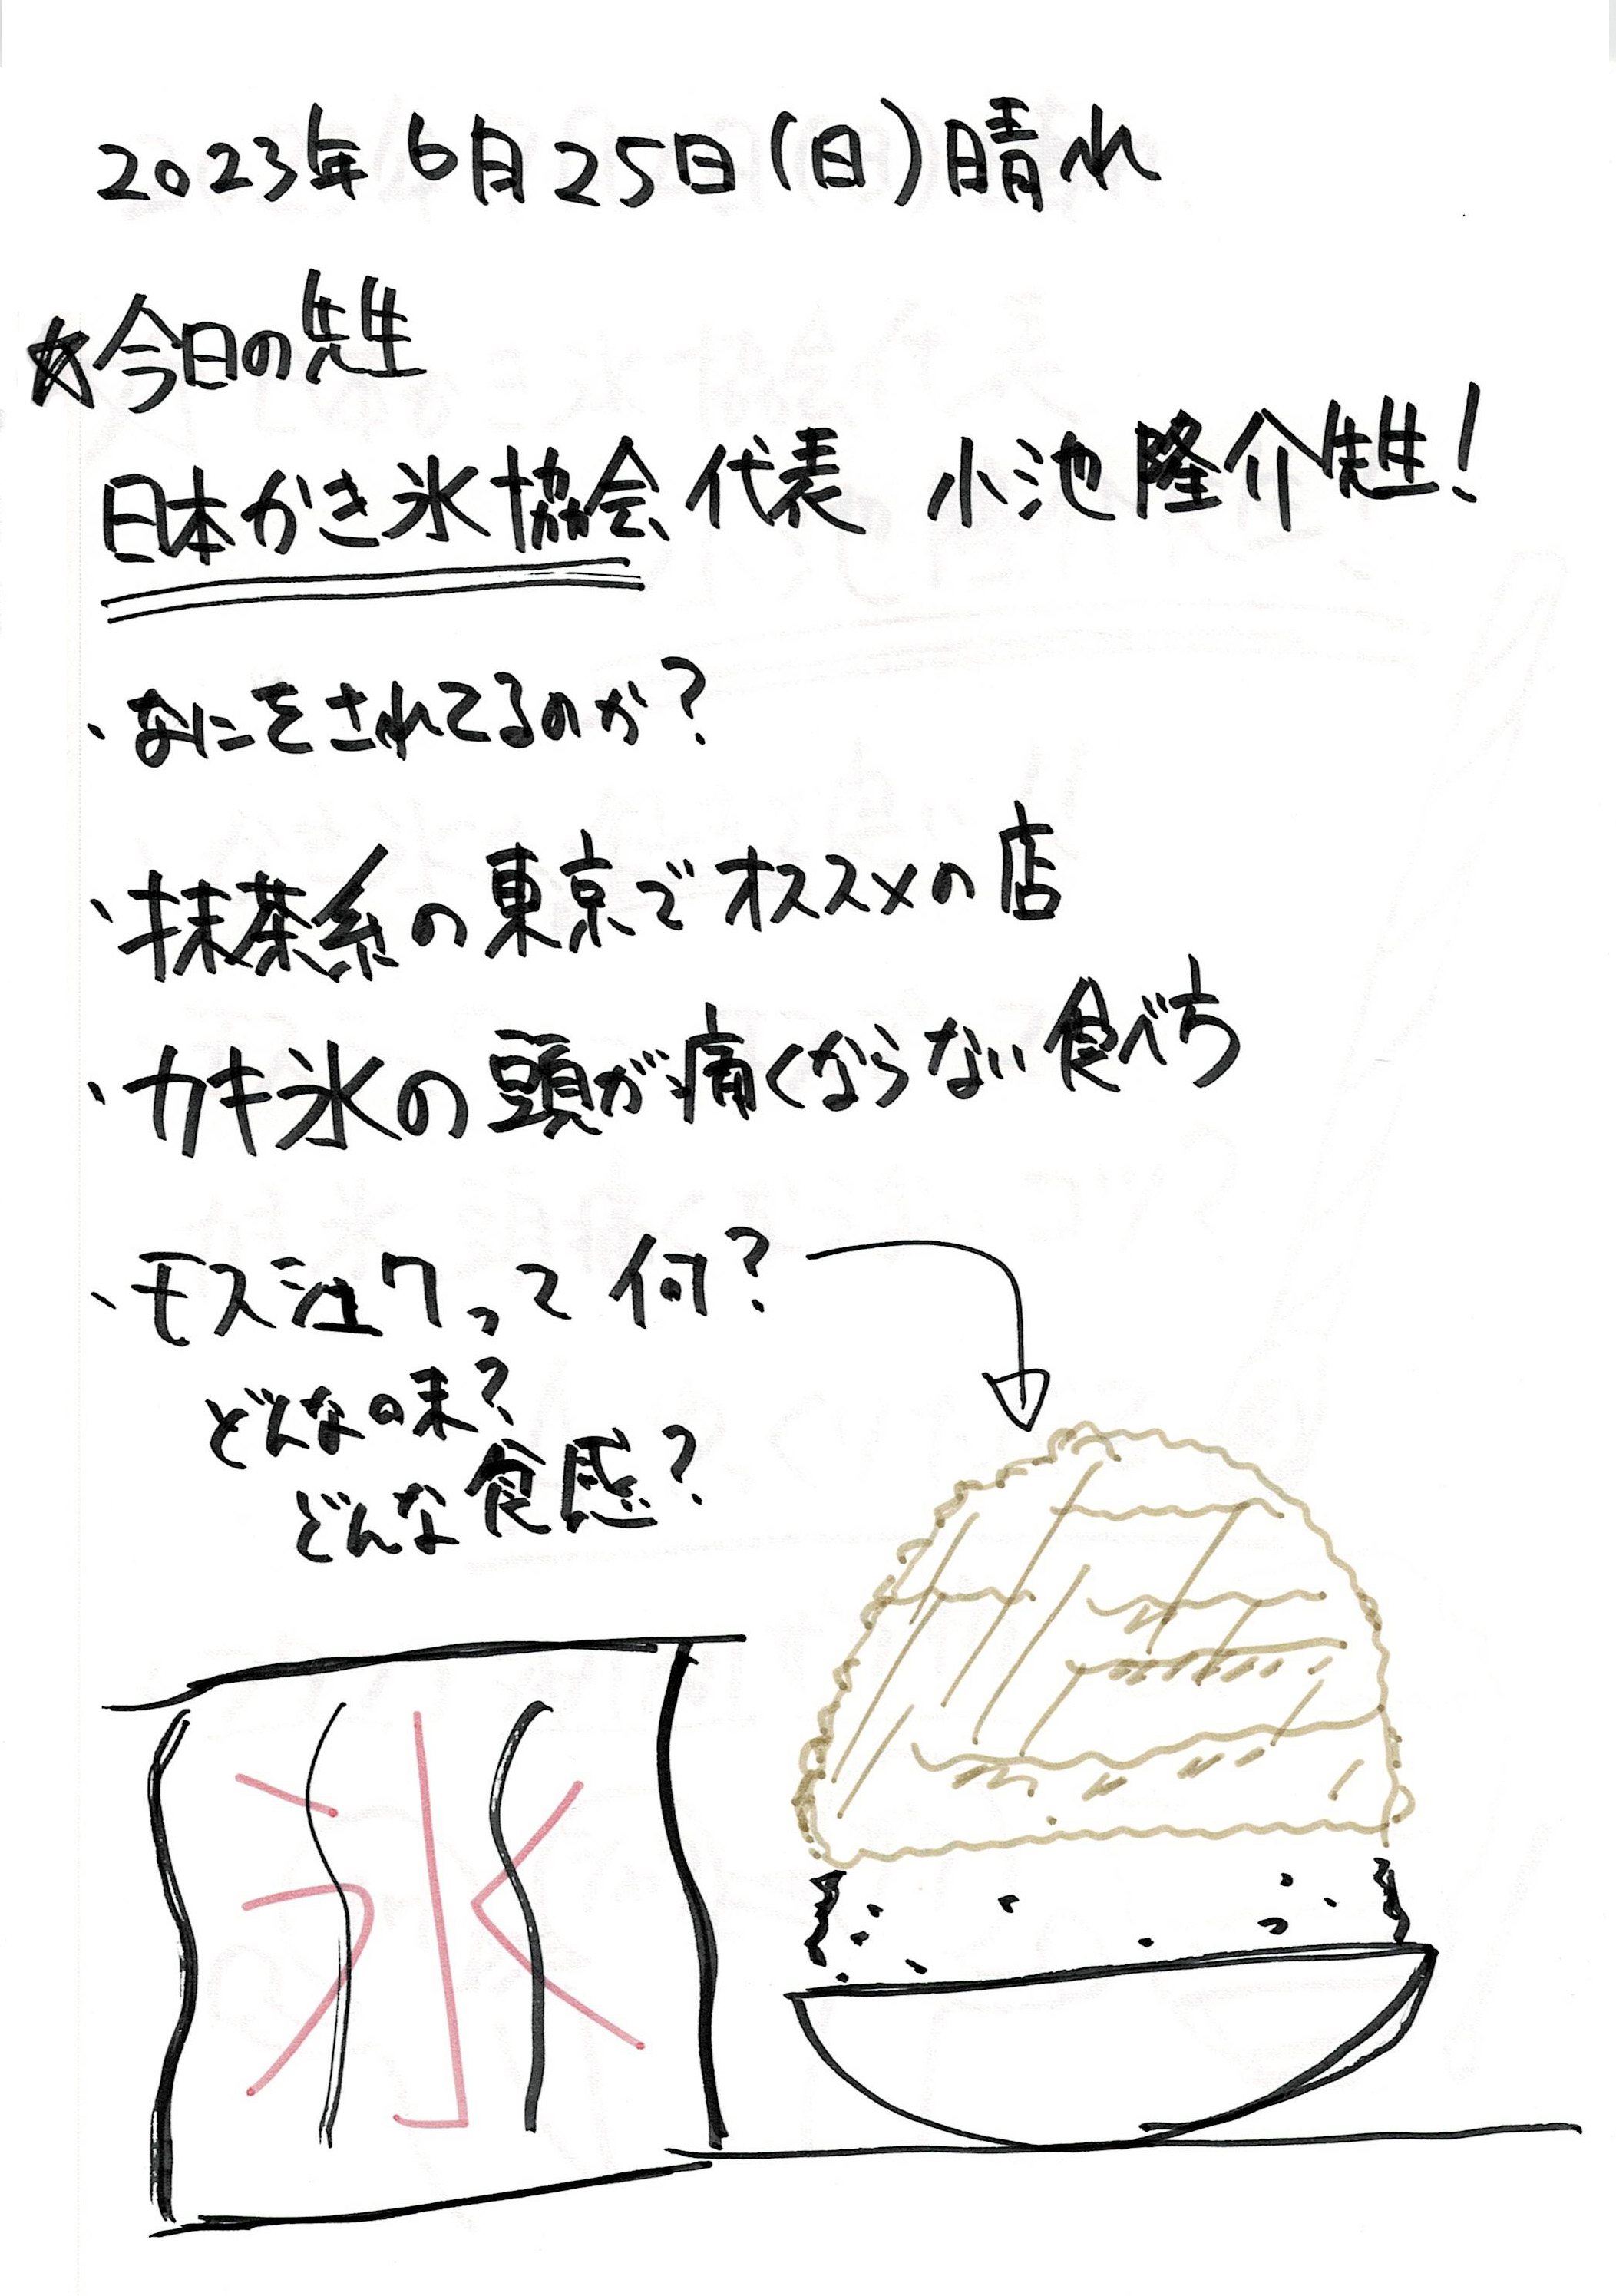 2023年6月25日(日)晴れ
☆今日の先生
日本かき氷協会代表 小池隆介先生!
・なにをされてるのか?
・抹茶系の東京でオススメの店
・カキ氷の頭が痛くならない食べ方
・モスジュクって何?
どんな味?
どんな食感?
氷